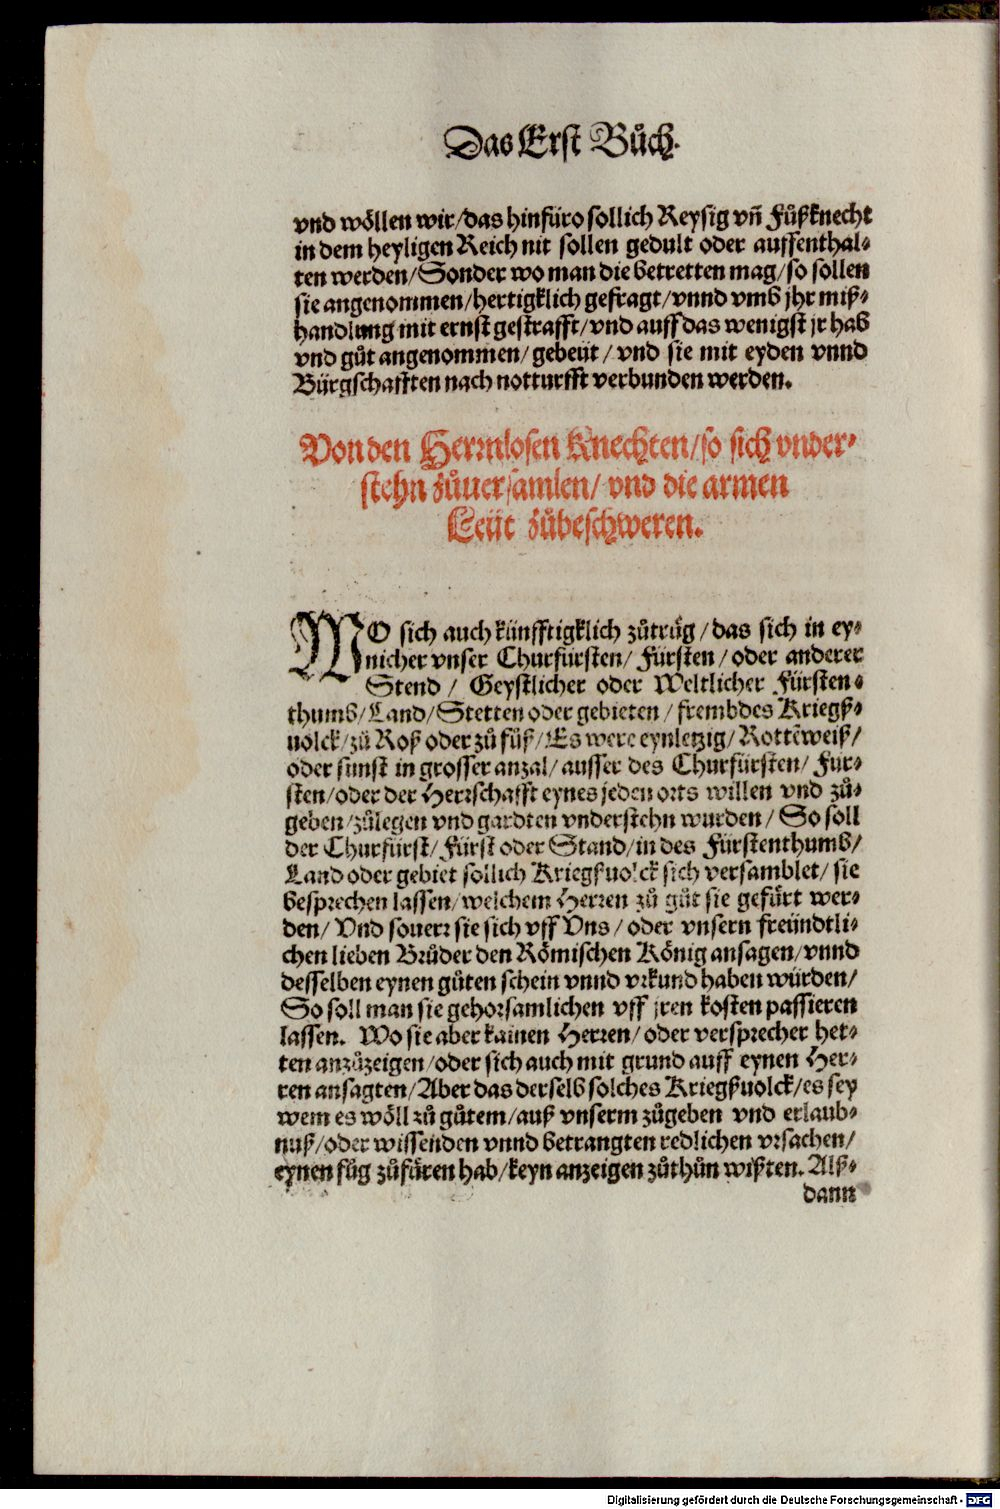 Das Erst Bůch.
vnd wöllen wir/das hinfüro sollich Reysig vñ Fůßknecht
in dem heyligen Reich nit sollen gedult oder auffenthal⸗
ten werden/Sonder wo man die betretten mag/so sollen
sie angenommen/hertigklich gefragt/vnnd vmb jhr miß⸗
handlung mit ernst gestrafft/vnd auff das wenigst jr hab
vnd gůt angenommen/gebeüt/vnd sie mit eyden vnnd
Bürgschafften nach notturfft verbunden werden.
Von den Herrnlosen Knechten/so sich vnder⸗
stehn zůuersamlen/vnd die armen
Leüt zůbeschweren.
WO sich auch künfftigklich zůtrüg/das sich in ey⸗
nicher vnser Churfürsten/Fürsten/oder anderer
Stend/Geystlicher oder Weltlicher Fürsten⸗
thumb/Land/Stetten oder gebieten/frembdes Kriegß⸗
uolck/zů Roß oder zů fůß/Es were eynletzig/Rottẽweiß/
oder sunst in grosser anzal/ausser des Churfürsten/Für⸗
sten/oder der Herrschafft eynes jeden orts willen vnd zů⸗
geben/zůlegen vnd gardten vnderstehn wurden/So soll
der Churfürst/Fürst oder Stand/in des Fürstenthumb/
Land oder gebiet sollich Kriegßuolck sich versamblet/sie
besprechen lassen/welchem Herren zů gůt sie gefürt wer⸗
den/Vnd souerr sie sich vff Vns/oder vnsern freündtli⸗
chen lieben Brůder den Römischen König ansagen/vnnd
desselben eynen gůten schein vnnd vrkund haben würden/
So soll man sie gehorsamlichen vff jren kosten passieren
lassen. Wo sie aber kainen Herren/oder versprecher het⸗
ten anzůzeigen/oder sich auch mit grund auff eynen Her⸗
ren ansagten/Aber das derselb solches Kriegßuolck/es sey
wem es wöll zů gůtem/auß vnserm zůgeben vnd erlaub⸗
nuß/oder wissenden vnnd betrangten redlichen vrsachen/
eynen fůg zůfüren hab/keyn anzeigen zůthůn wißten. Alß⸗
dann
Digitalisierung gefördert durch die Deutsche Forschungsgemeinschaft - DFG